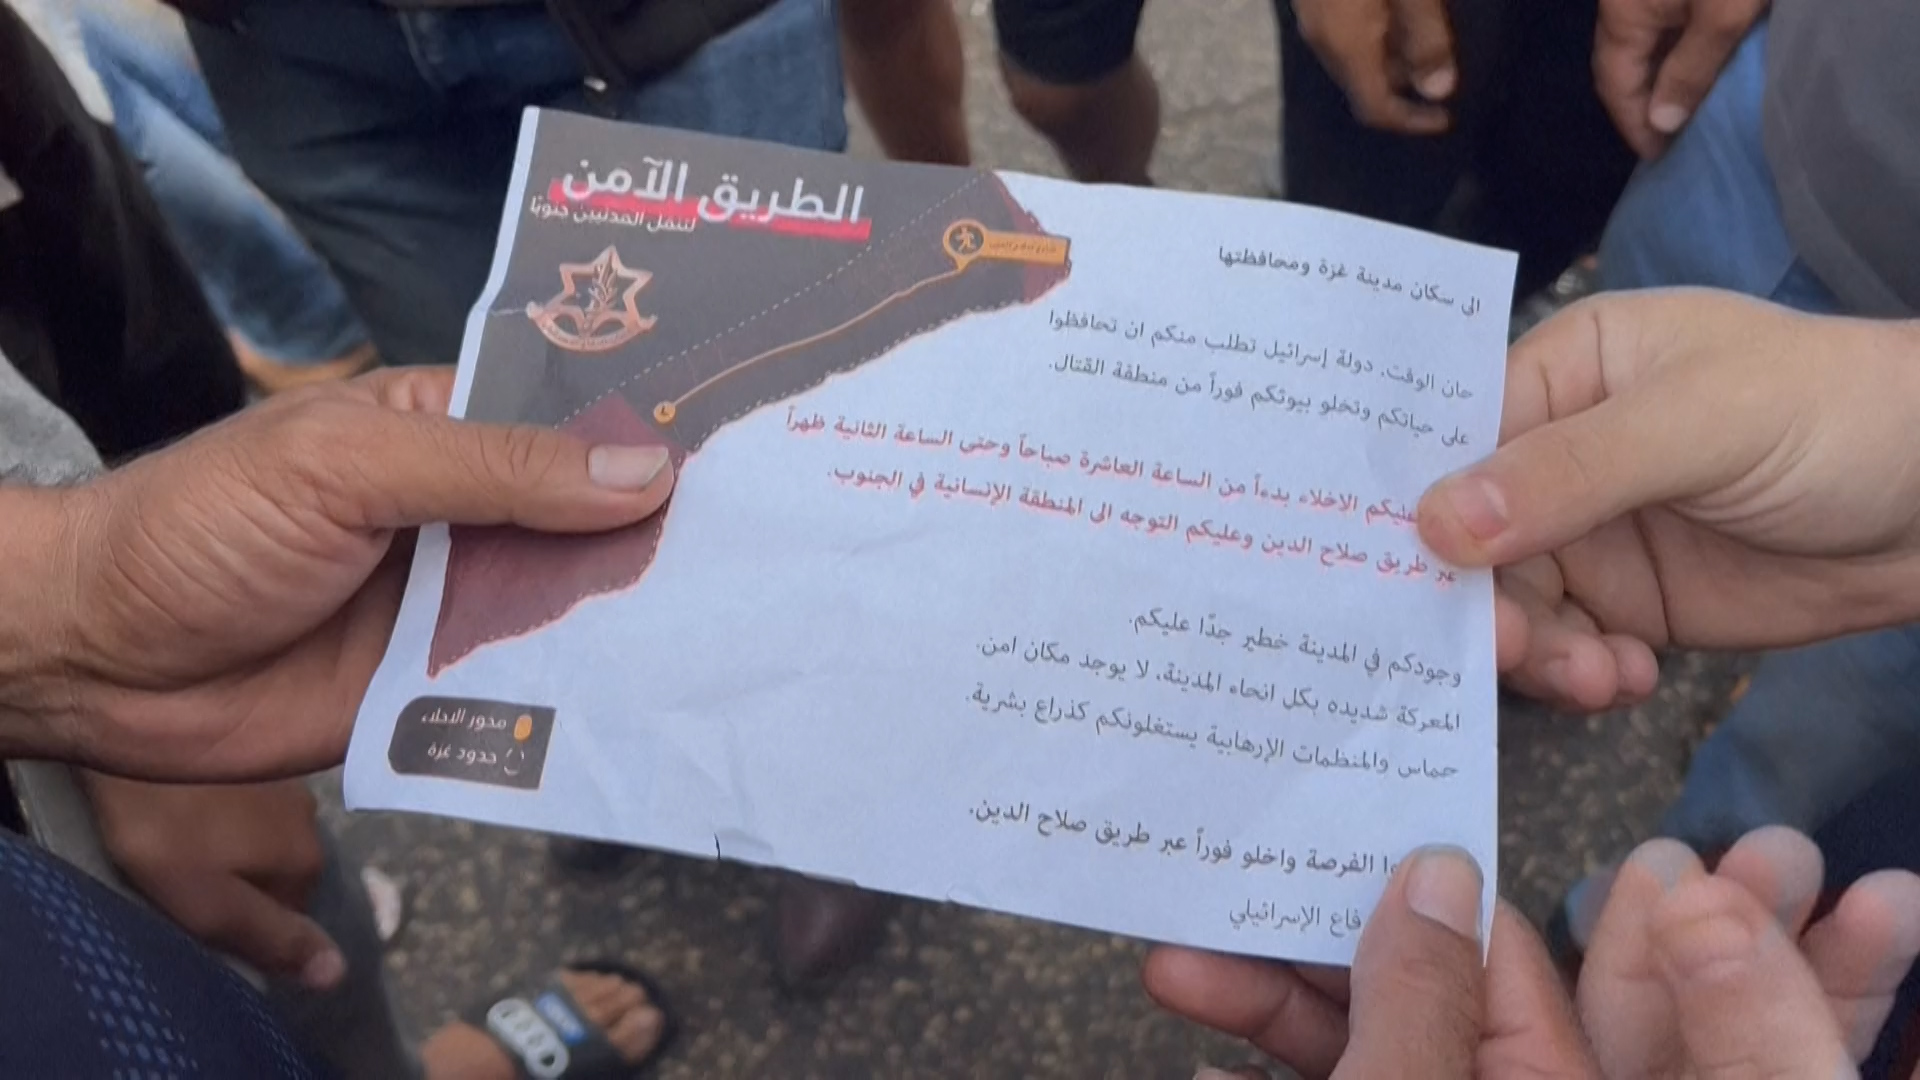 الطريق الآمن
لتنقل المدنيين جنوبًا
الى سكان مدينة غزة ومحافظتها
حان الوقت. دولة إسرائيل تطلب منكم ان تحافظوا
على حياتكم وتخلو بيوتكم فوراً من منطقة القتال.
عليكم الاخلاء بدءاً من الساعة العاشرة صباحاً وحتى الساعة الثانية ظهراً
عبر طريق صلاح الدين وعليكم التوجه الى المنطقة الإنسانية في الجنوب.
وجودكم في المدينة خطير جدًا عليكم.
المعركة شديده بكل انحاء المدينة، لا يوجد مكان امن.
حماس والمنظمات الإرهابية يستغلونكم كذراع بشرية.
الفرصة واخلو فوراً عبر طريق صلاح الدين.
فاع الإسرائيلي
محور الاخلاء
حدود غزة